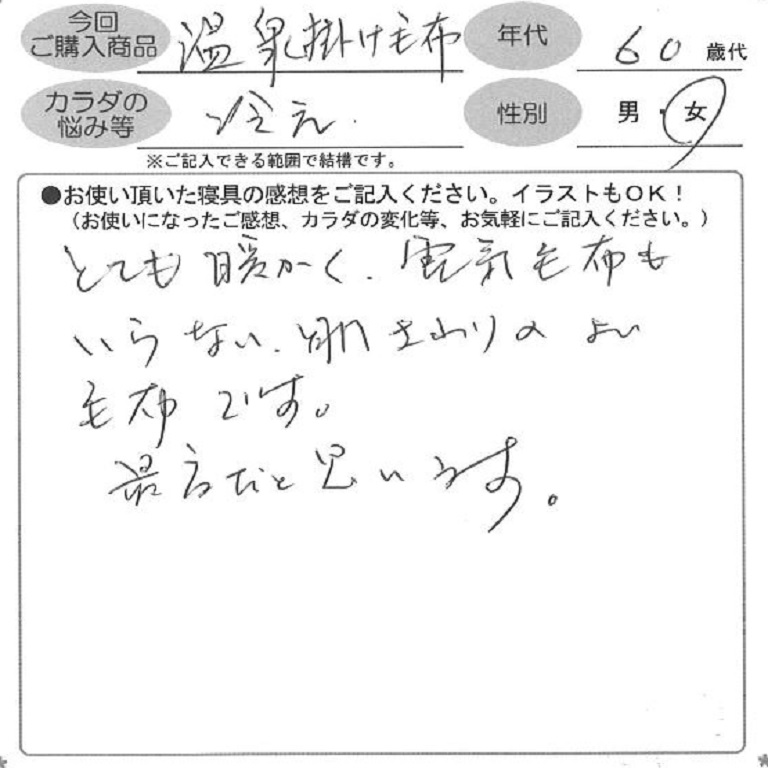 今回
ご購入商品
温泉掛け毛布
年代
60 歳代
カラダの
悩み等
冷え.
性別
男・女
※ご記入できる範囲で結構です。
●お使い頂いた寝具の感想をご記入ください。イラストもOK!
(お使いになったご感想、カラダの変化等、お気軽にご記入ください。)
とても暖かく、電気毛布も
いらない、肌ざわりのよい
毛布です。
最高だと思います。